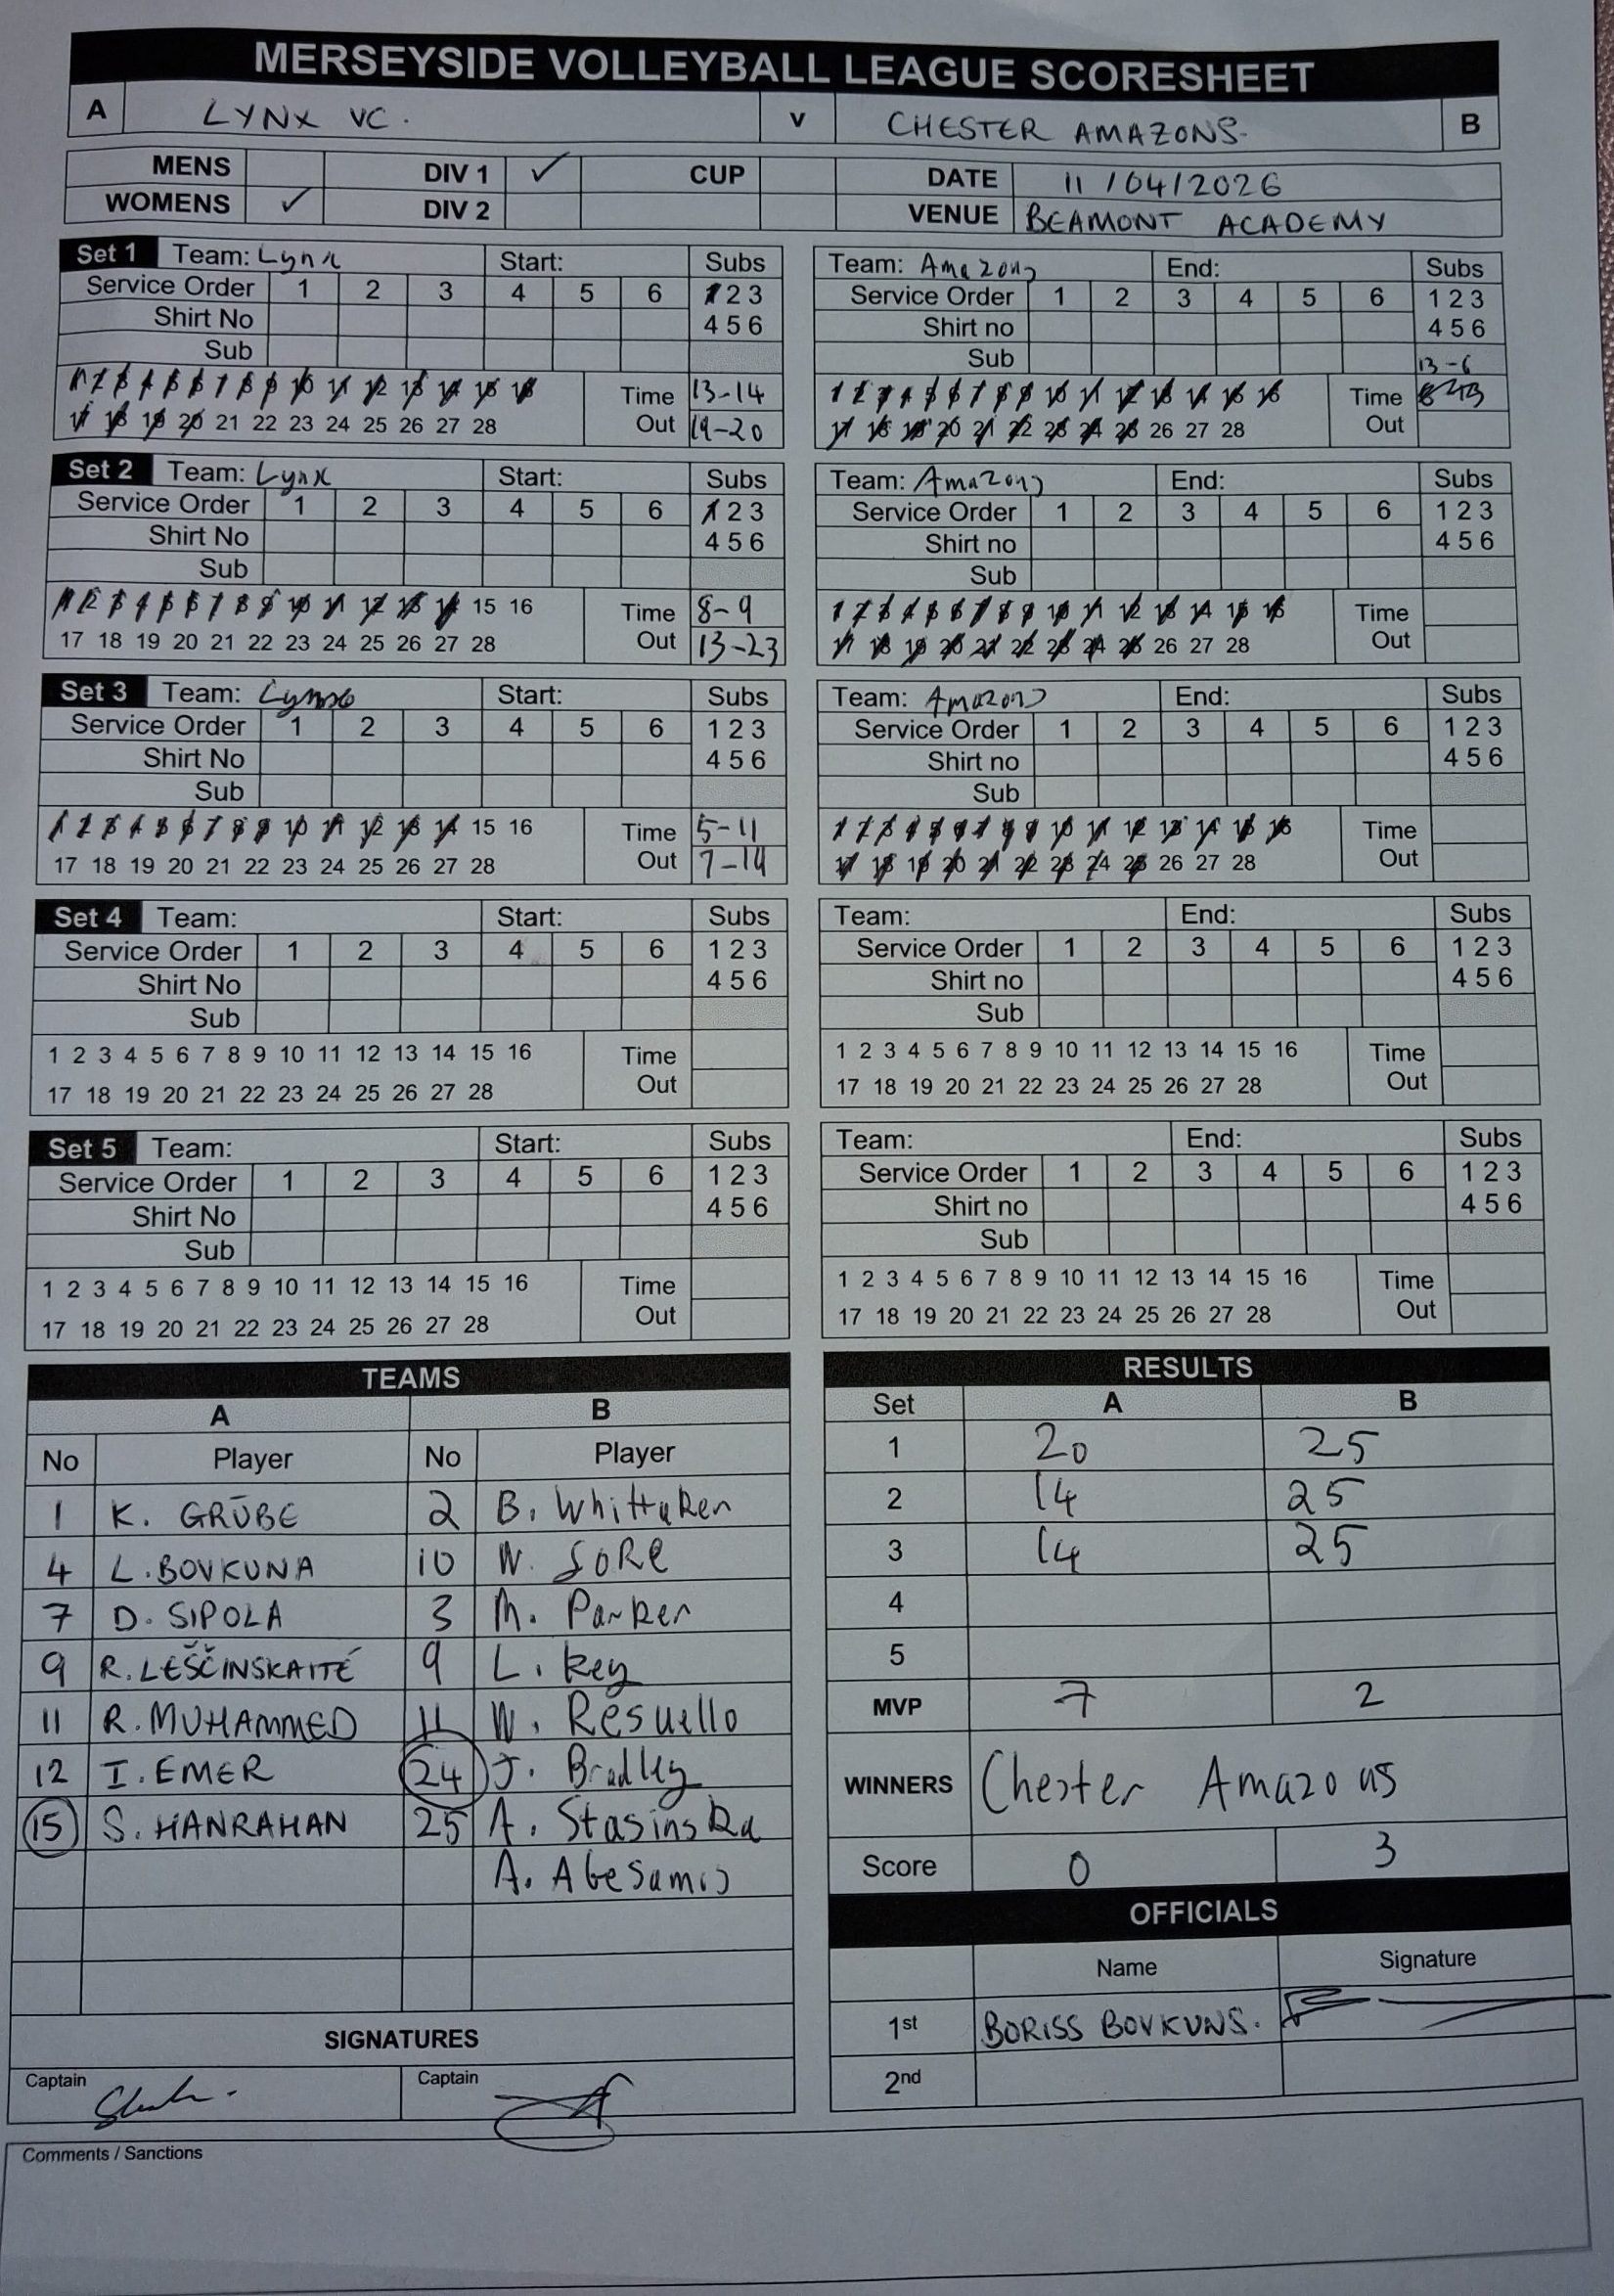 MERSEYSIDE VOLLEYBALL LEAGUE SCORESHEET
A LYNX VC. v CHESTER AMAZONS. B
MENS DIV 1 ✓ CUP DATE 11/04/2026
WOMENS ✓ DIV 2 VENUE BEAMONT ACADEMY
Set 1 Team: Lynx Start: Subs Team: Amazons End: Subs
Service Order 1 2 3 4 5 6 1 2 3 Service Order 1 2 3 4 5 6 1 2 3
Shirt No 4 5 6 Shirt no 4 5 6
Sub Sub 13-6
1 2 3 4 5 6 7 8 9 10 11 12 13 14 15 16 Time 13-14 1 2 3 4 5 6 7 8 9 10 11 12 13 14 15 16 Time
17 18 19 20 21 22 23 24 25 26 27 28 Out 19-20 17 18 19 20 21 22 23 24 25 26 27 28 Out
Set 2 Team: Lynx Start: Subs Team: Amazons End: Subs
Service Order 1 2 3 4 5 6 1 2 3 Service Order 1 2 3 4 5 6 1 2 3
Shirt No 4 5 6 Shirt no 4 5 6
Sub Sub
1 2 3 4 5 6 7 8 9 10 11 12 13 14 15 16 Time 8-9 1 2 3 4 5 6 7 8 9 10 11 12 13 14 15 16 Time
17 18 19 20 21 22 23 24 25 26 27 28 Out 13-23 17 18 19 20 21 22 23 24 25 26 27 28 Out
Set 3 Team: Start: Subs Team: Amazons End: Subs
Service Order 1 2 3 4 5 6 1 2 3 Service Order 1 2 3 4 5 6 1 2 3
Shirt No 4 5 6 Shirt no 4 5 6
Sub Sub
1 2 3 4 5 6 7 8 9 10 11 12 13 14 15 16 Time 5-11 1 2 3 4 5 6 7 8 9 10 11 12 13 14 15 16 Time
17 18 19 20 21 22 23 24 25 26 27 28 Out 7-14 17 18 19 20 21 22 23 24 25 26 27 28 Out
Set 4 Team: Start: Subs Team: End: Subs
Service Order 1 2 3 4 5 6 1 2 3 Service Order 1 2 3 4 5 6 1 2 3
Shirt No 4 5 6 Shirt no 4 5 6
Sub Sub
1 2 3 4 5 6 7 8 9 10 11 12 13 14 15 16 Time 1 2 3 4 5 6 7 8 9 10 11 12 13 14 15 16 Time
17 18 19 20 21 22 23 24 25 26 27 28 Out 17 18 19 20 21 22 23 24 25 26 27 28 Out
Set 5 Team: Start: Subs Team: End: Subs
Service Order 1 2 3 4 5 6 1 2 3 Service Order 1 2 3 4 5 6 1 2 3
Shirt No 4 5 6 Shirt no 4 5 6
Sub Sub
1 2 3 4 5 6 7 8 9 10 11 12 13 14 15 16 Time 1 2 3 4 5 6 7 8 9 10 11 12 13 14 15 16 Time
17 18 19 20 21 22 23 24 25 26 27 28 Out 17 18 19 20 21 22 23 24 25 26 27 28 Out
TEAMS
A B
No Player No Player
1 K. GRŪBE 2 B. Whittaker
4 L. BOVKUNA 10 W. SORE
7 D. SIPOLA 3 M. Parker
9 R. LEŠČINSKAITĖ 9 L. Key
11 R. MUHAMMED 11 W. Resuello
12 I. EMER 24 J. Bradley
15 S. HANRAHAN 25 A. Stasinska
A. Abesamis
SIGNATURES
Captain Captain
RESULTS
Set A B
1 20 25
2 14 25
3 14 25
4
5
MVP 7 2
WINNERS Chester Amazons
Score 0 3
OFFICIALS
Name Signature
1st BORISS BOVKUNS.
2nd
Comments / Sanctions